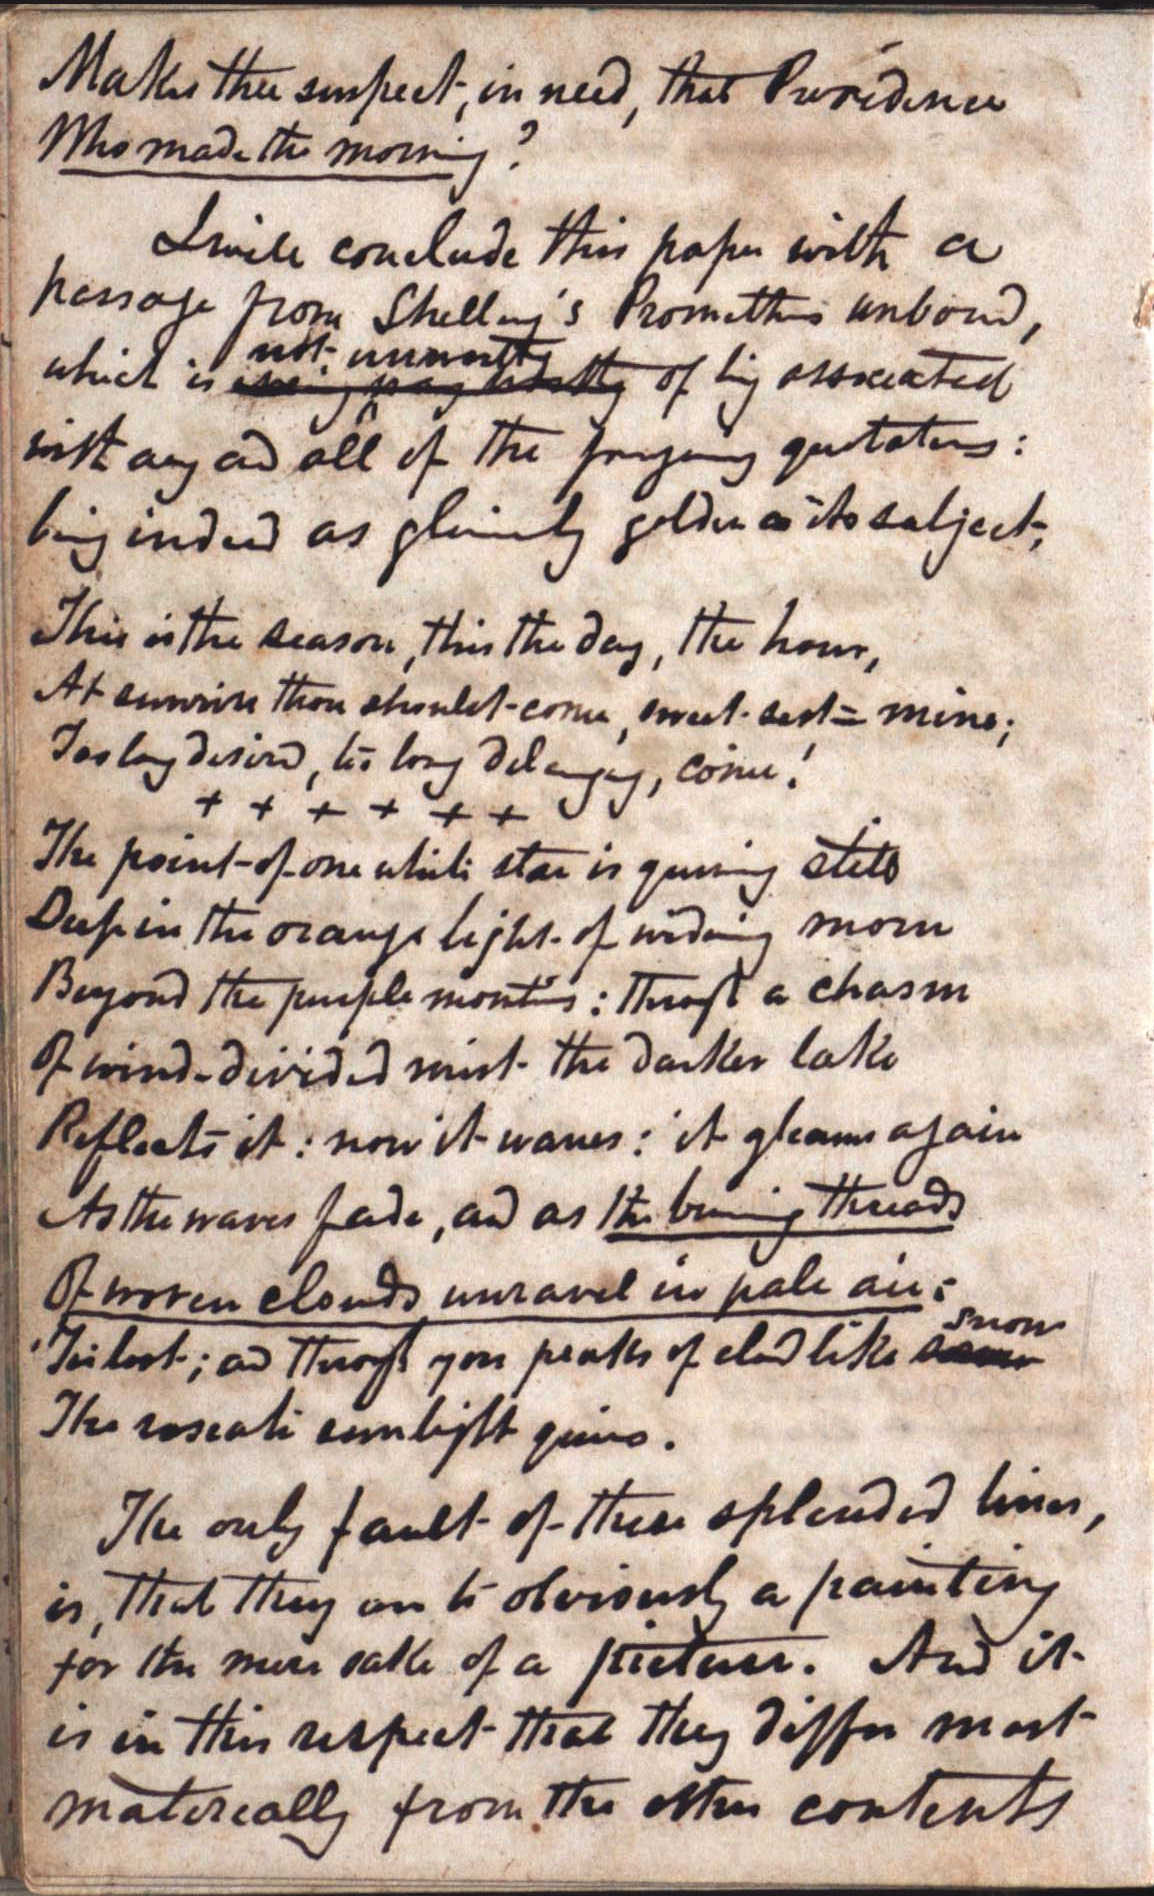 Makes thee suspect, in need, that Providence
Who made the morning?
I will conclude this paper with a
passage from Shelley's Prometheus unbound,
not unworthy
which is of being associated
with any and all of the foregoing quotations:
being indeed as gloriously golden as its subject;
This is the season, this the day, the hour,
At sunrise thou shouldst come, sweet sister mine;
Too long desired, too long delaying, come!
+ + + + + +
The point of one white star is quivering still
Deep in the orange light of widening morn
Beyond the purple mountains: through a chasm
Of wind-divided mist the darker lake
Reflects it: now it wanes: it gleams again
As the waves fade, and as the burning threads
Of woven clouds unravel in pale air:
snow
'Tis lost; and through yon peaks of cloud like
The roseate sunlight quivers.
The only fault of these splendid lines,
is, that they are too obviously a painting
for the mere sake of a picture. And it
is in this respect that they differ most
materially from the other contents